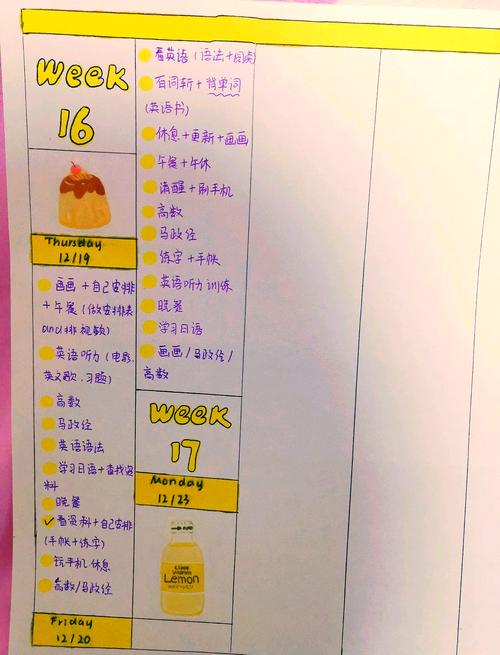 Week
16
Thursday
12/19
画画 + 自己安排
+ 午餐 (做安排表
and 排视频)
英语听力 (电影.
英文歌. 习题)
高数
马政经
英语语法
学习日语 + 查找资
料
晚餐
✓看资料 + 自己安排
(手帐 + 练字)
玩手机休息
高数/马政经
Friday
12/20
看英语 (语法 + 阅读)
百词斩 + 背单词
(英语书)
休息 + 更新 + 画画
午餐 + 午休
清醒 + 刷手机
高数
马政经
练字 + 手帐
英语听力训练
晚餐
学习日语
画画/马政经/
高数
Week
17
Monday
12/23
Lemon